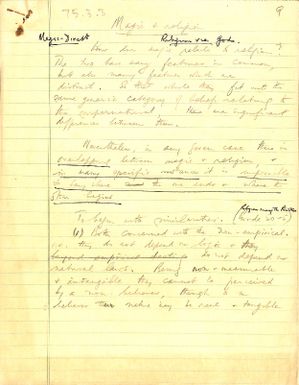 75.3.3
9
Magic & religion
Magic - Direct Religion via Gods
How does magic relate to religion?
The two have many features in common,
but also many features which are
distinct. So that while they fit into the
same generic category of belief relating to
the supernatural, there are significant
differences between them.
Nevertheless, in any given case there is
overlapping between magic & religion, &
in many specific instances it is impossible
to say where the one ends & where the
other begins
To begin with similarities.
(1) Both concerned with the non-empirical.
i.e. they do not depend on logic & they
do not depend on
natural laws. Being non-measurable
& intangible they cannot be perceived
by a non-believer, though to a
believer they may be real & tangible.